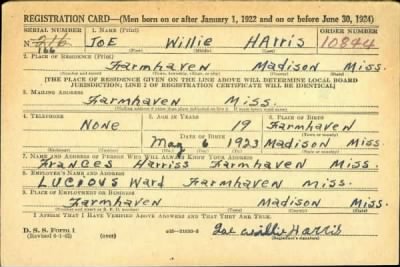 REGISTRATION CARD—(Men born on or after January 1, 1922 and on or before June 30, 1924)
SERIAL NUMBER 1. NAME (Print) ORDER NUMBER
N- 216 JOE Willie HArris 10844
166 (First) (Middle) (Last)
2. PLACE OF RESIDENCE (Print)
Farmhaven Madison Miss.
(Number and street) (Town, township, village, or city) (County) (State)
[THE PLACE OF RESIDENCE GIVEN ON THE LINE ABOVE WILL DETERMINE LOCAL BOARD
JURISDICTION; LINE 2 OF REGISTRATION CERTIFICATE WILL BE IDENTICAL]
3. MAILING ADDRESS
Farmhaven Miss.
[Mailing address if other than place indicated on line 2. If same, insert word same]
4. TELEPHONE 5. AGE IN YEARS 6. PLACE OF BIRTH
None 19 Farmhaven
DATE OF BIRTH (Town or county)
May 6 1923 Madison Miss.
(Exchange) (Number) (Mo.) (Day) (Yr.) (State or country)
7. NAME AND ADDRESS OF PERSON WHO WILL ALWAYS KNOW YOUR ADDRESS
Frances Harriss Farmhaven Miss
8. EMPLOYER'S NAME AND ADDRESS
Lucious Ward Farmhaven Miss.
9. PLACE OF EMPLOYMENT OR BUSINESS
Farmhaven Madison Miss.
(Number and street or R. F. D. number) (Town) (County) (State)
I AFFIRM THAT I HAVE VERIFIED ABOVE ANSWERS AND THAT THEY ARE TRUE.
D. S. S. Form 1
(Revised 6-1-42) (over) Joe Willie Harris
(Registrant's signature)